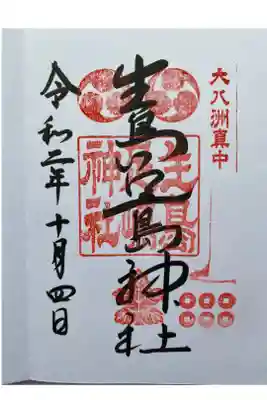 大八洲真中
生島足島神社
生島
足島
神社
令和二年十月四日